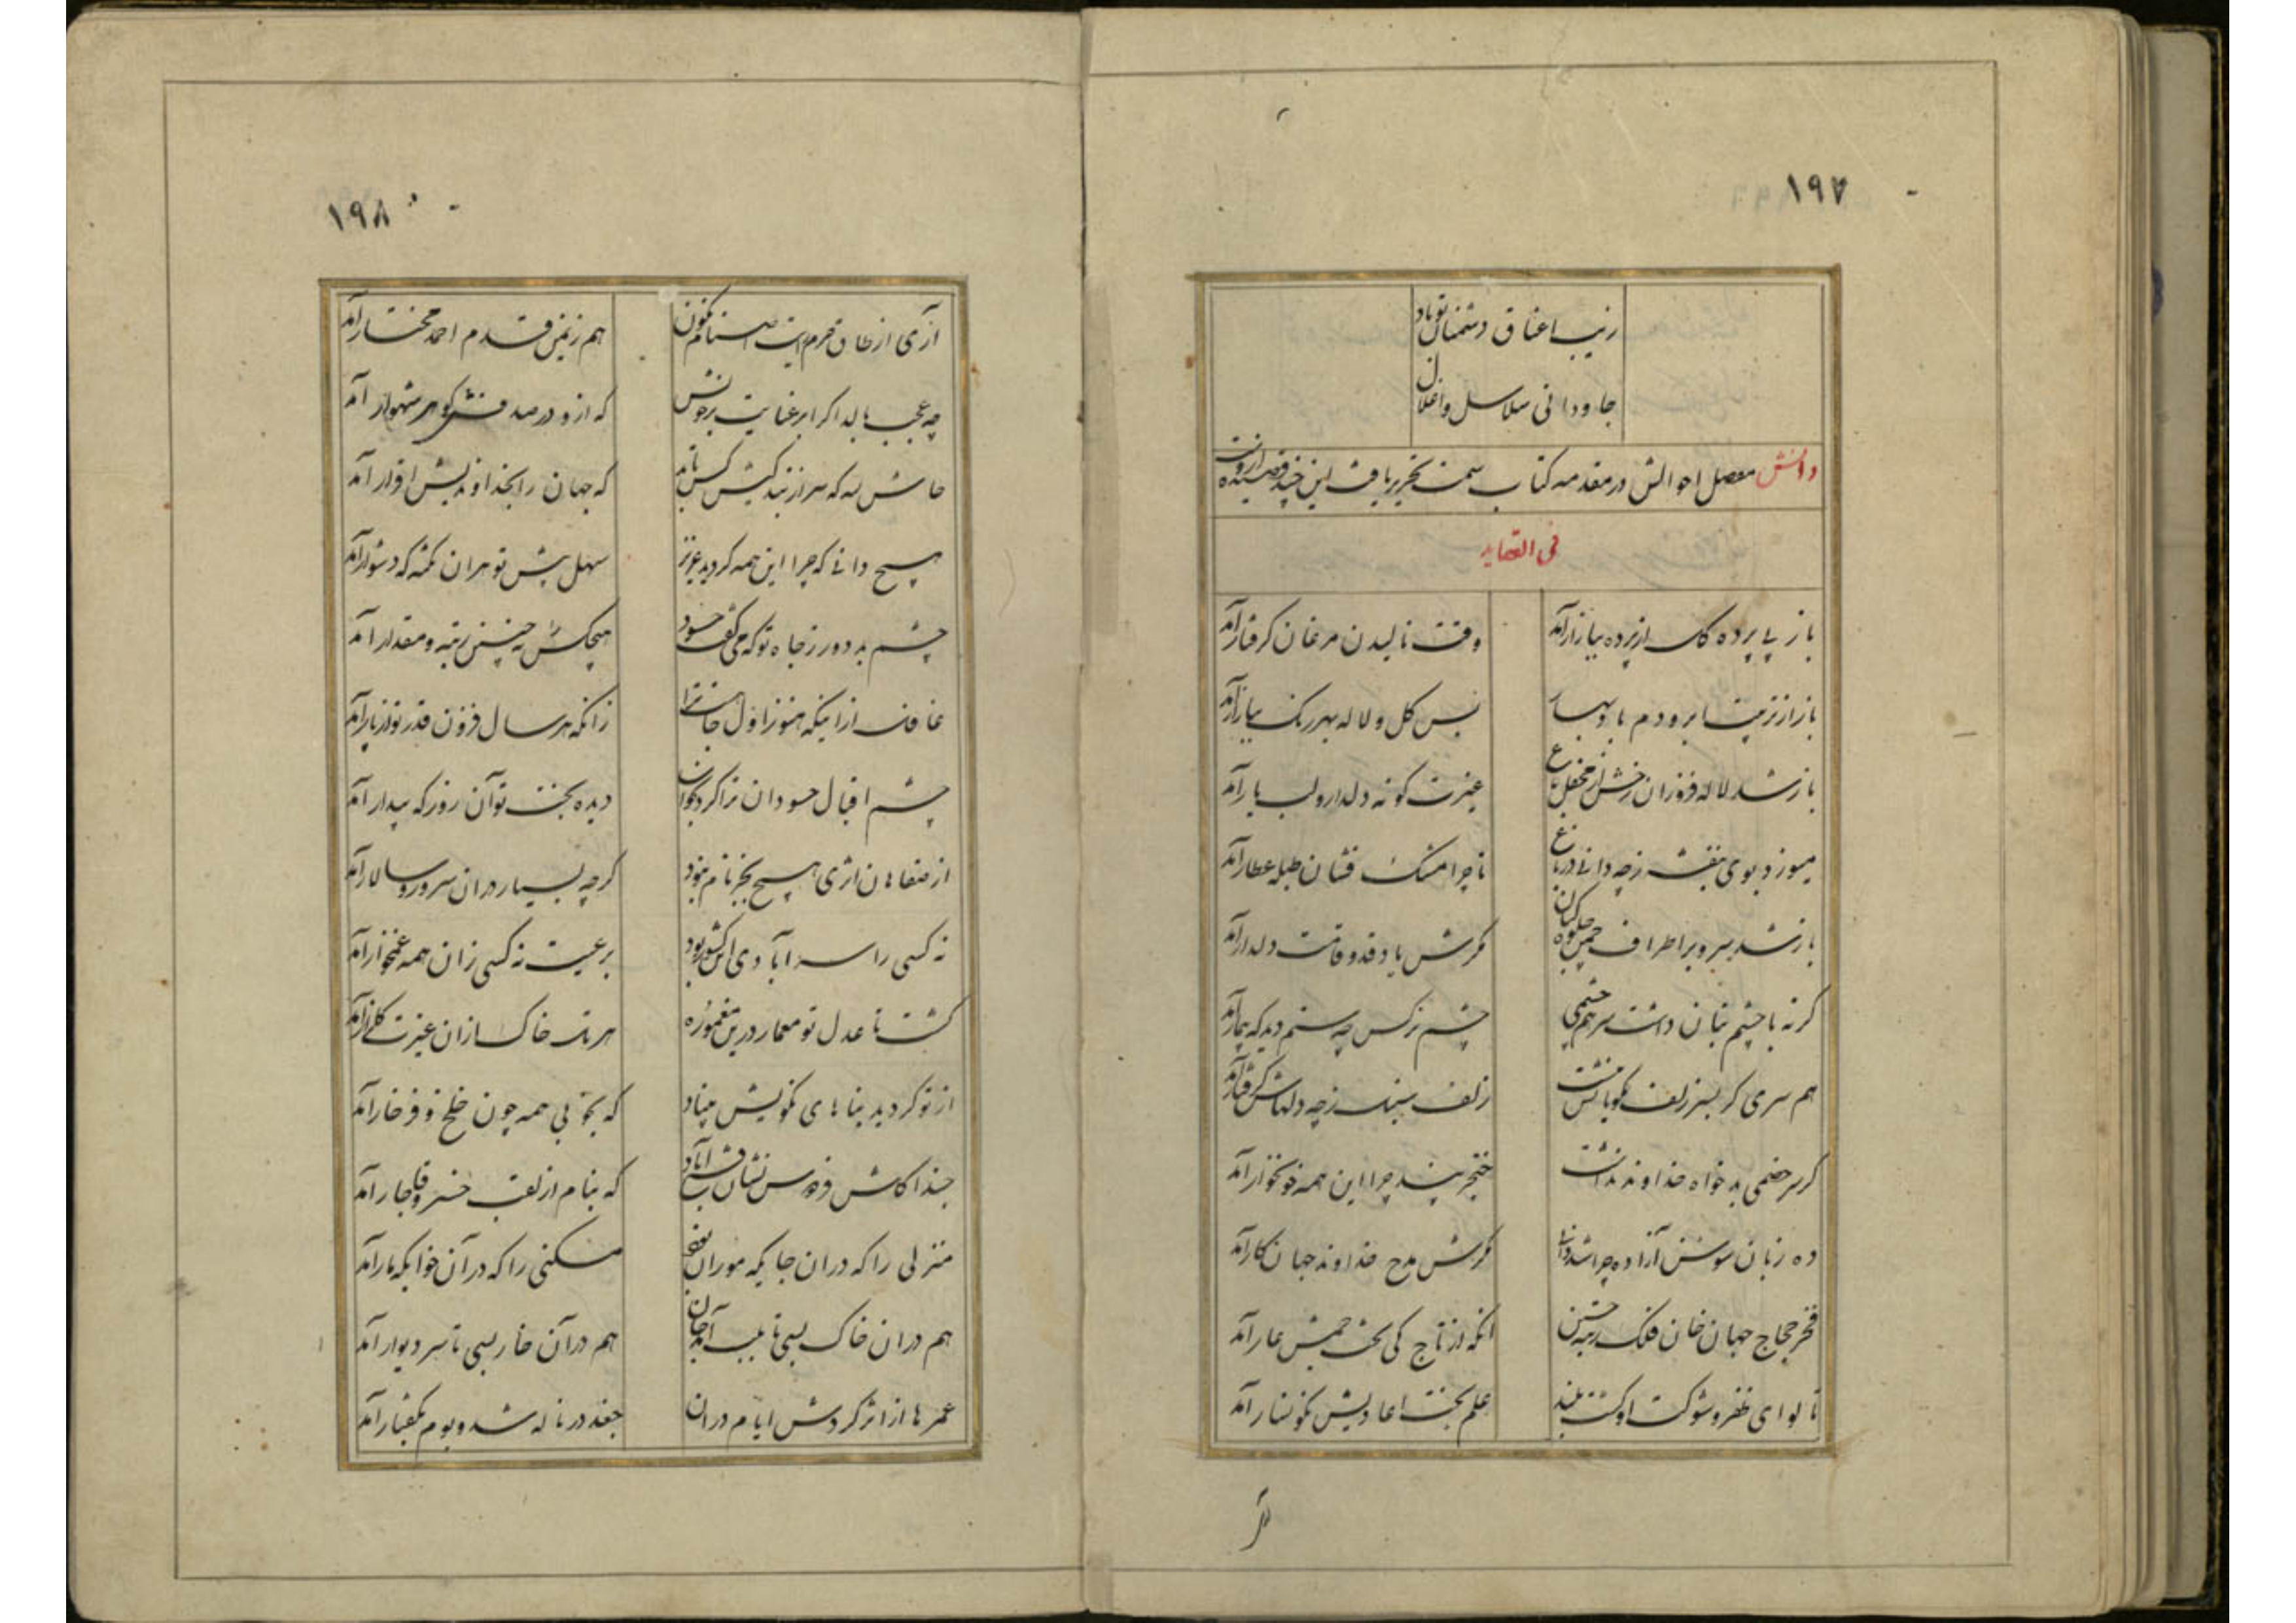 ۱۹۷
زیب اعناق دشمنان تو باد
جاودانی سلاسل و اغلال
دانش مفصل احوالش در مقدمه کتاب سمت تحریر یافت این چند قصیده از اوست
فی القصاید
باز بی پرده گل از پرده ببازار آمد وقت نالیدن مرغان گرفتار آمد
باز از تربیت ابر و دم باد بهار بس گل و لاله بهر رنگ ببازار آمد
باز شد لاله فروزان رخش از محفل باغ غیرت گونه دلدار و لب یار آمد
میوزد بوی بنفشه ز چه دانی در باغ تا چرا مشک فشان طبله عطار آمد
باز شد سرو بر اطراف چمن جلوه کنان مگرش یاد قد و قامت دلدار آمد
گر نه با چشم بتان داشت سر هم چشمی چشم نرگس چه ستم دید که بیمار آمد
هم سری گر بسر زلف نکویانش نداشت زلف سنبل ز چه دلهاش گرفتار آمد
گر سر خصمی بدخواه خداوند نداشت خنجر بید چرا این همه خونخوار آمد
ده زبان سوسن آزاده چرا شد دانی مگرش مدح خداوند جهان کار آمد
فخر حجاج جهان خان فلک رتبه حسین آنکه از تاج کی و تخت جمش عار آمد
تا لوای ظفر و شوکت او گشت بلند علم بخت اعادیش نگونسار آمد
۱۹۸
آری از طاق حرم اصنام نگون هم ز یمن قدم احمد مختار آمد
چه عجب بالد اگر ابر عنایت بر خویش که ازو در صدفش گوهر شهوار آمد
حاش لله که سر از بندگیش کس تابد که جهان را بخداوندیش اقرار آمد
هیچ دانی که چرا این همه گردید عزیز سهل پیش تو هر آن نکته که دشوار آمد
چشم بد دور ز جاه تو که می گفت حسود هیچکس را نه چنین رتبه و مقدار آمد
غافل از اینکه هنوز اول جاهست ترا زانکه هر سال فزون قدر تو از پار آمد
چشم اقبال حسودان ترا کرد بخواب دیده بخت تو آن روز که بیدار آمد
از صفاهان اثری هیچ بجز نام نبود گرچه بسیار در آن سرور و سالار آمد
نه کسی را سر آبادی این کشور بود بر رعیت نه کسی زان همه غمخوار آمد
گشت تا عدل تو معمار درین معموره هر تل خاک ازان غیرت گلزار آمد
از تو گردید بناهای نکویش بنیاد که بخوبی همه چون خلخ و فرخار آمد
حبذا کاش فردوس نشان فتح آباد که بنام از لقب خسرو قاجار آمد
منزلی را که در آن جایگه موران بود مسکنی را که در آن خوابگه مار آمد
هم در آن خاک بسی تا بلب آمد جان هم در آن خار بسی تا سر دیوار آمد
عمرها از اثر گردش ایام در آن جغد در ناله شد و بوم بگفتار آمد